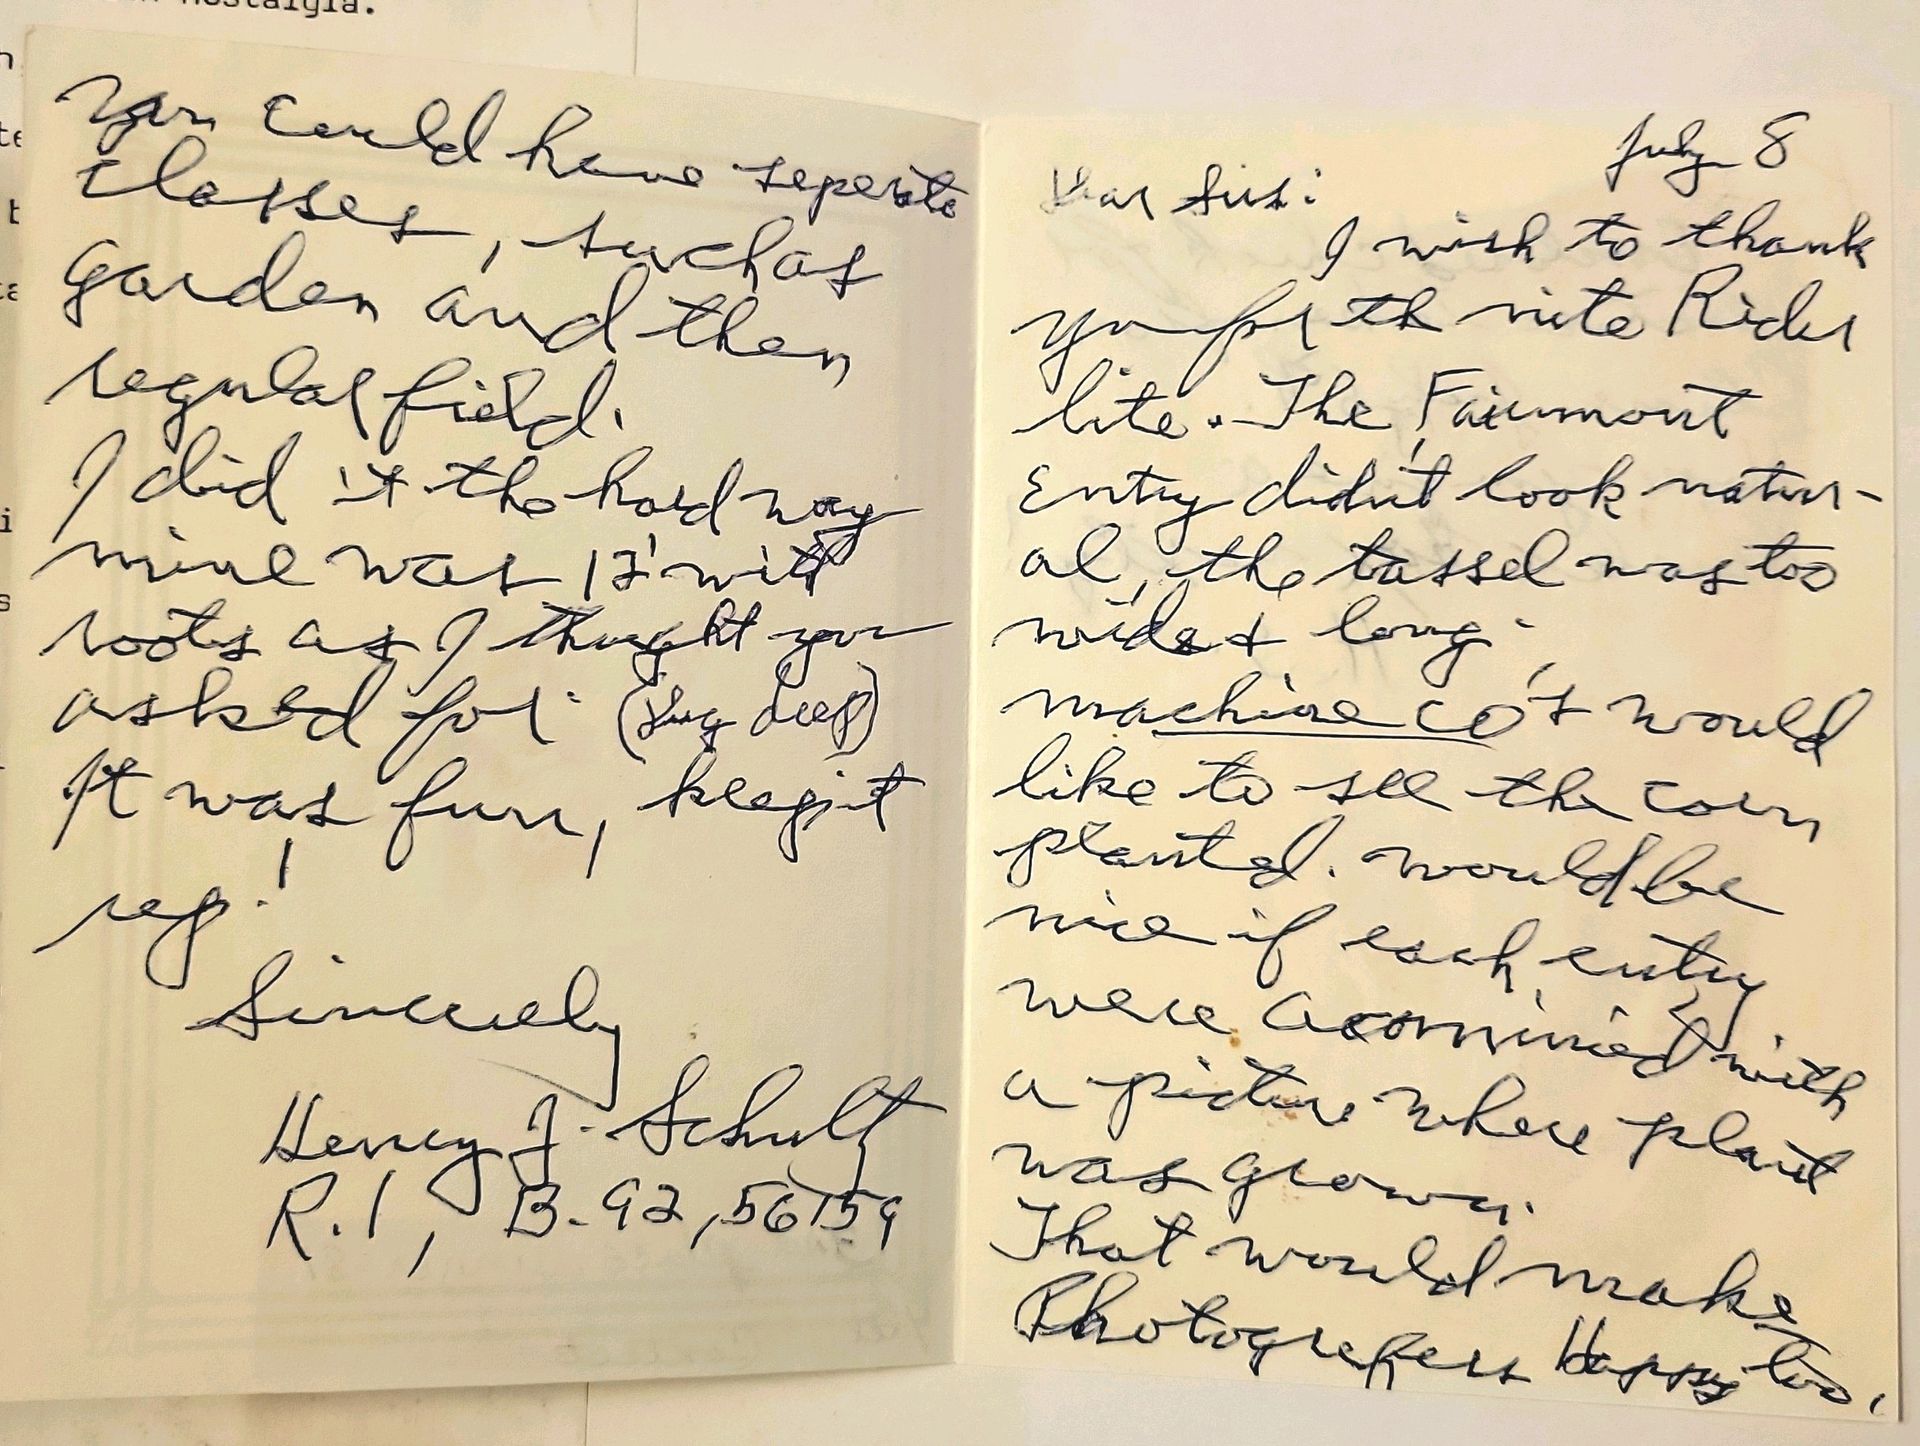 n nostalgia.
July 8
Dear Sirs:
I wish to thank
you for th nite Rider
lite. The Fairmont
Entry didn't look natur-
al, the tassel was too
wide & long.
machine co's would
like to see the corn
planted. would be
nice if each entry
were accominied with
a picture where plant
was grown.
That would make
Photografers Happy too.
You could have seperate
classes, such as
garden and then
regular field.
I did it the hard way
mine was 12' with
roots as I thought you
asked for. (dug deep)
It was fun, keep it
rep!
Sincerely
Henry J. Schult
R.1, B-92, 56159